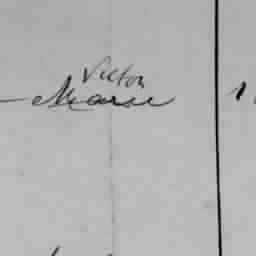 Victor
— Marie
1